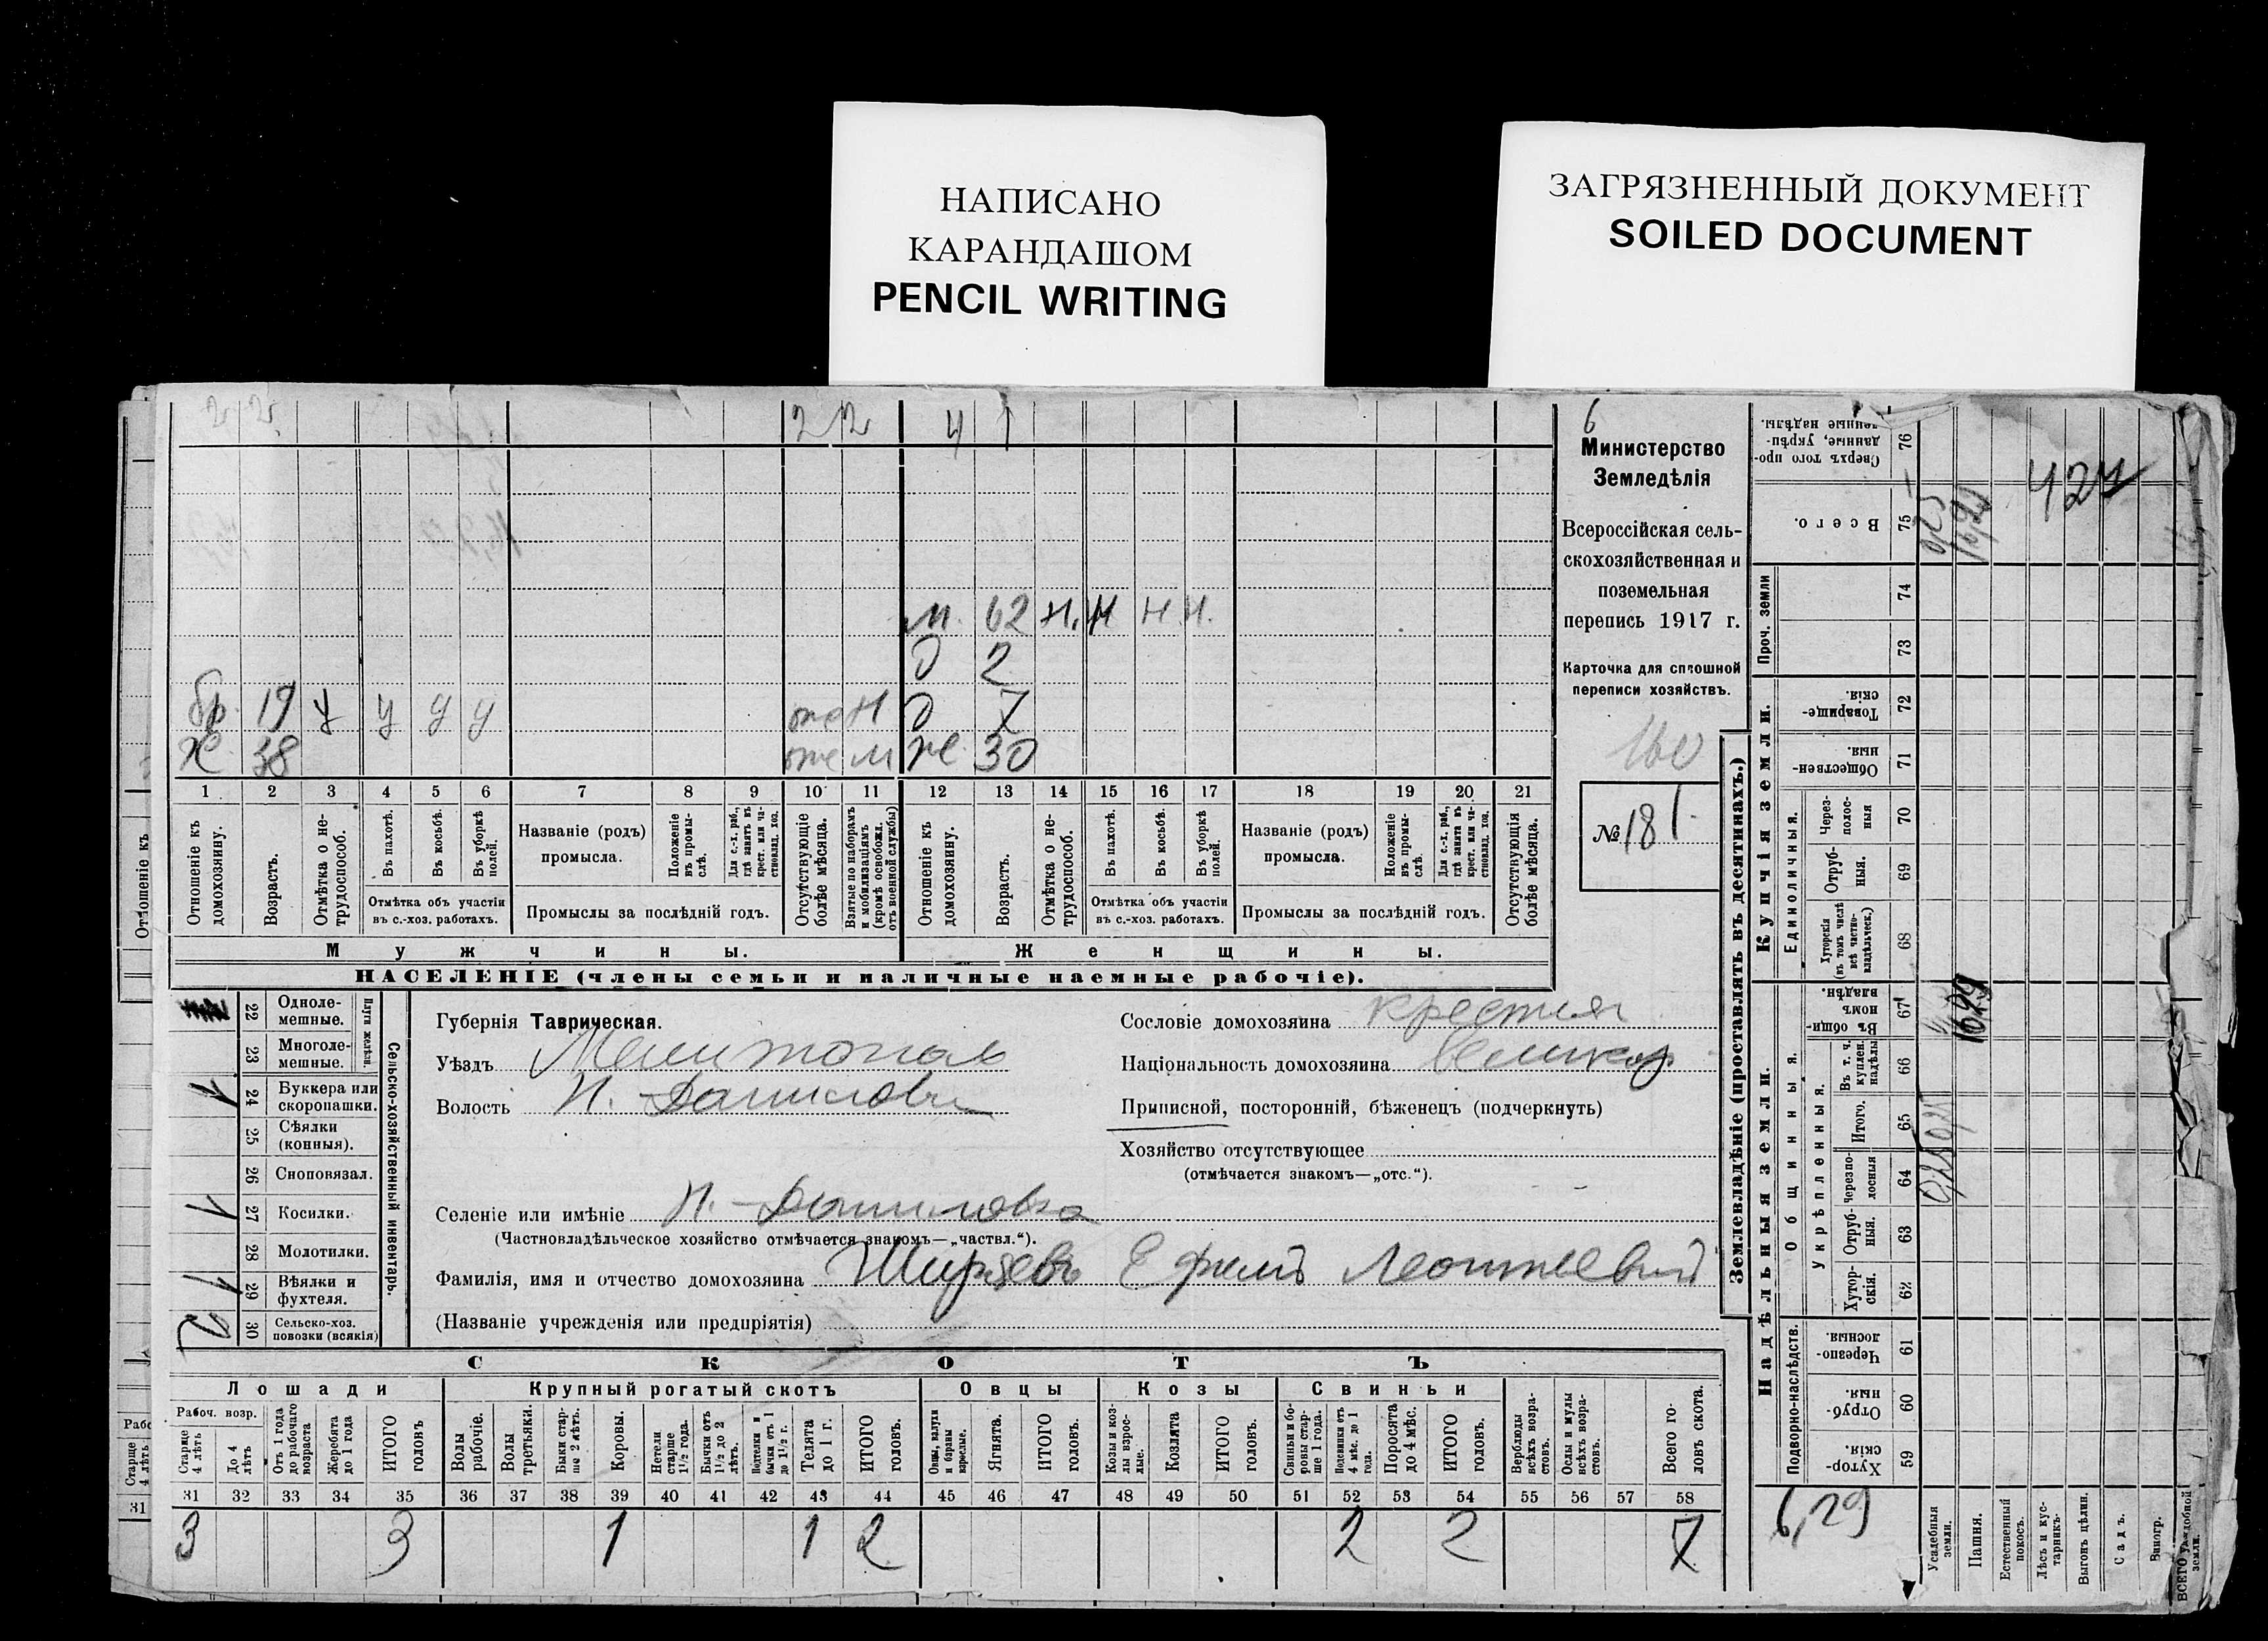 НАПИСАНО
КАРАНДАШОМ
PENCIL WRITING
ЗАГРЯЗНЕННЫЙ ДОКУМЕНТ
SOILED DOCUMENT
2 2 2 2 4 1
м. 62 н. н н н.
д 2
бр. 19 у у у у д 7
ж. 38 ж 30
1 2 3 4 5 6 7 8 9 10 11 12 13 14 15 16 17 18 19 20 21
Отношеніе къ домохозяину.
Возрастъ.
Отмѣтка о нетрудоспособ.
Въ пахотѣ.
Въ косьбѣ.
Въ уборкѣ полей.
Отмѣтка объ участіи
въ с.-хоз. работахъ.
Названіе (родъ)
промысла.
Положеніе въ промыслѣ.
Для с.-х. раб., гдѣ занятъ въ крест. или частновлад. хоз.
Промыслы за послѣдній годъ.
Отсутствующіе болѣе мѣсяца.
Взятые по наборамъ и мобилизаціямъ (кромѣ освобожд. отъ военной службы)
Отношеніе къ домохозяину.
Возрастъ.
Отмѣтка о нетрудоспособ.
Въ пахотѣ.
Въ косьбѣ.
Въ уборкѣ полей.
Отмѣтка объ участіи
въ с.-хоз. работахъ.
Названіе (родъ)
промысла.
Положеніе въ промыслѣ.
Для с.-х. раб., гдѣ занята въ крест. или частновлад. хоз.
Промыслы за послѣдній годъ.
Отсутствующія болѣе мѣсяца.
Мужчины.
Женщины.
НАСЕЛЕНІЕ (члены семьи и наличные наемные рабочіе).
6
Министерство
Земледѣлія
Всероссійская сель-
скохозяйственная и
поземельная
перепись 1917 г.
Карточка для сплошной
переписи хозяйствъ.
160
№ 181
22 Одноле-
мешные.
23 Многоле-
мешные.
Плуги желѣзн.
24 Буккера или
скоропашки.
25 Сѣялки
(конныя).
26 Сноповязал.
27 Косилки.
28 Молотилки.
29 Вѣялки и
фухтеля.
30 Сельско-хоз.
повозки (всякія)
1
1
1
2
Сельско-хозяйственный инвентарь.
Губернія Таврическая.
Уѣздъ Мелитопол
Волость Н. Данилов
Сословіе домохозяина крестья
Національность домохозяина великор
Приписной, посторонній, бѣженецъ (подчеркнуть)
Хозяйство отсутствующее
(отмѣчается знакомъ—„отс.“).
Селеніе или имѣніе Н. Даниловка
(Частновладѣльческое хозяйство отмѣчается знакомъ—„частвл.“).
Фамилія, имя и отчество домохозяина Ширяевъ Ефимъ Леонтьевич
(Названіе учрежденія или предпріятія)
СКОТЪ
Лошади
Крупный рогатый скотъ
Овцы
Козы
Свиньи
Рабоч. возр.
Старше 4 лѣтъ
До 4 лѣтъ
Отъ 1 года до рабочаго возраста
Жеребята до 1 года
ИТОГО головъ
Волы рабочіе.
Волы третьяки.
Быки старше 2 лѣтъ.
Коровы.
Нетели старше 1½ года.
Бычки отъ 1½ до 2 лѣтъ.
Подтелки и бычки отъ 1 до 1½ г.
Телята до 1 г.
ИТОГО головъ.
Овцы, валухи и бараны взрослые.
Ягнята.
ИТОГО головъ.
Козы и козлы взрослые.
Козлята
ИТОГО головъ.
Свиньи и боровы старше 1 года.
Подсвинки отъ 4 мѣс. до 1 года.
Поросята до 4 мѣс.
ИТОГО головъ.
Верблюды всѣхъ возрастовъ.
Ослы и мулы всѣхъ возрастовъ.
Всего головъ скота.
31 32 33 34 35 36 37 38 39 40 41 42 43 44 45 46 47 48 49 50 51 52 53 54 55 56 57 58
3 3 1 1 2 2 2 7
Землевладѣніе (проставлять въ десятинахъ.)
Купчія земли.
Надѣльныя земли.
Сверхъ того проданные, укрѣпленные надѣлы.
76
Всего.
75
Проч. земли
74
73
Товарищескія.
72
Общественныя.
71
Единоличныя.
Черезполосныя
70
Отрубныя.
69
Хуторскія (въ томъ числѣ всѣ частновладѣльческ.)
68
Общинныя.
Въ общинномъ владѣн.
67
Укрѣпленныя.
Въ т. ч. куплен. надѣлы
66
Итого.
65
Черезполосныя
64
Отрубныя.
63
Хуторскія.
62
Подворно-наслѣдств.
Черезполосныя.
61
Отрубныя.
60
Хуторскія.
59
424
6,29
Усадебныя земли.
Пашня.
Естественный покосъ.
Лѣсъ и кустарникъ.
Выгонъ цѣлин.
Садъ.
Виногр.
ВСЕГО удобной земли.
Отношеніе къ
Старше 4 лѣтъ
31